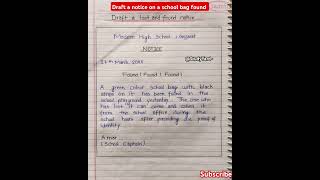 Draft a notice on a school bag found
Draft a lost and found notice
Modern High School,
NOTICE
27th March, 2025
Found! Found! Found!
A green colour school bag with black
strips on it has been found in the
school playground yesterday. The one who
has lost it can come and collect it
from the school office during the
school hours after providing the proof of
identity.
Amar
(School Captain)
Subscribe